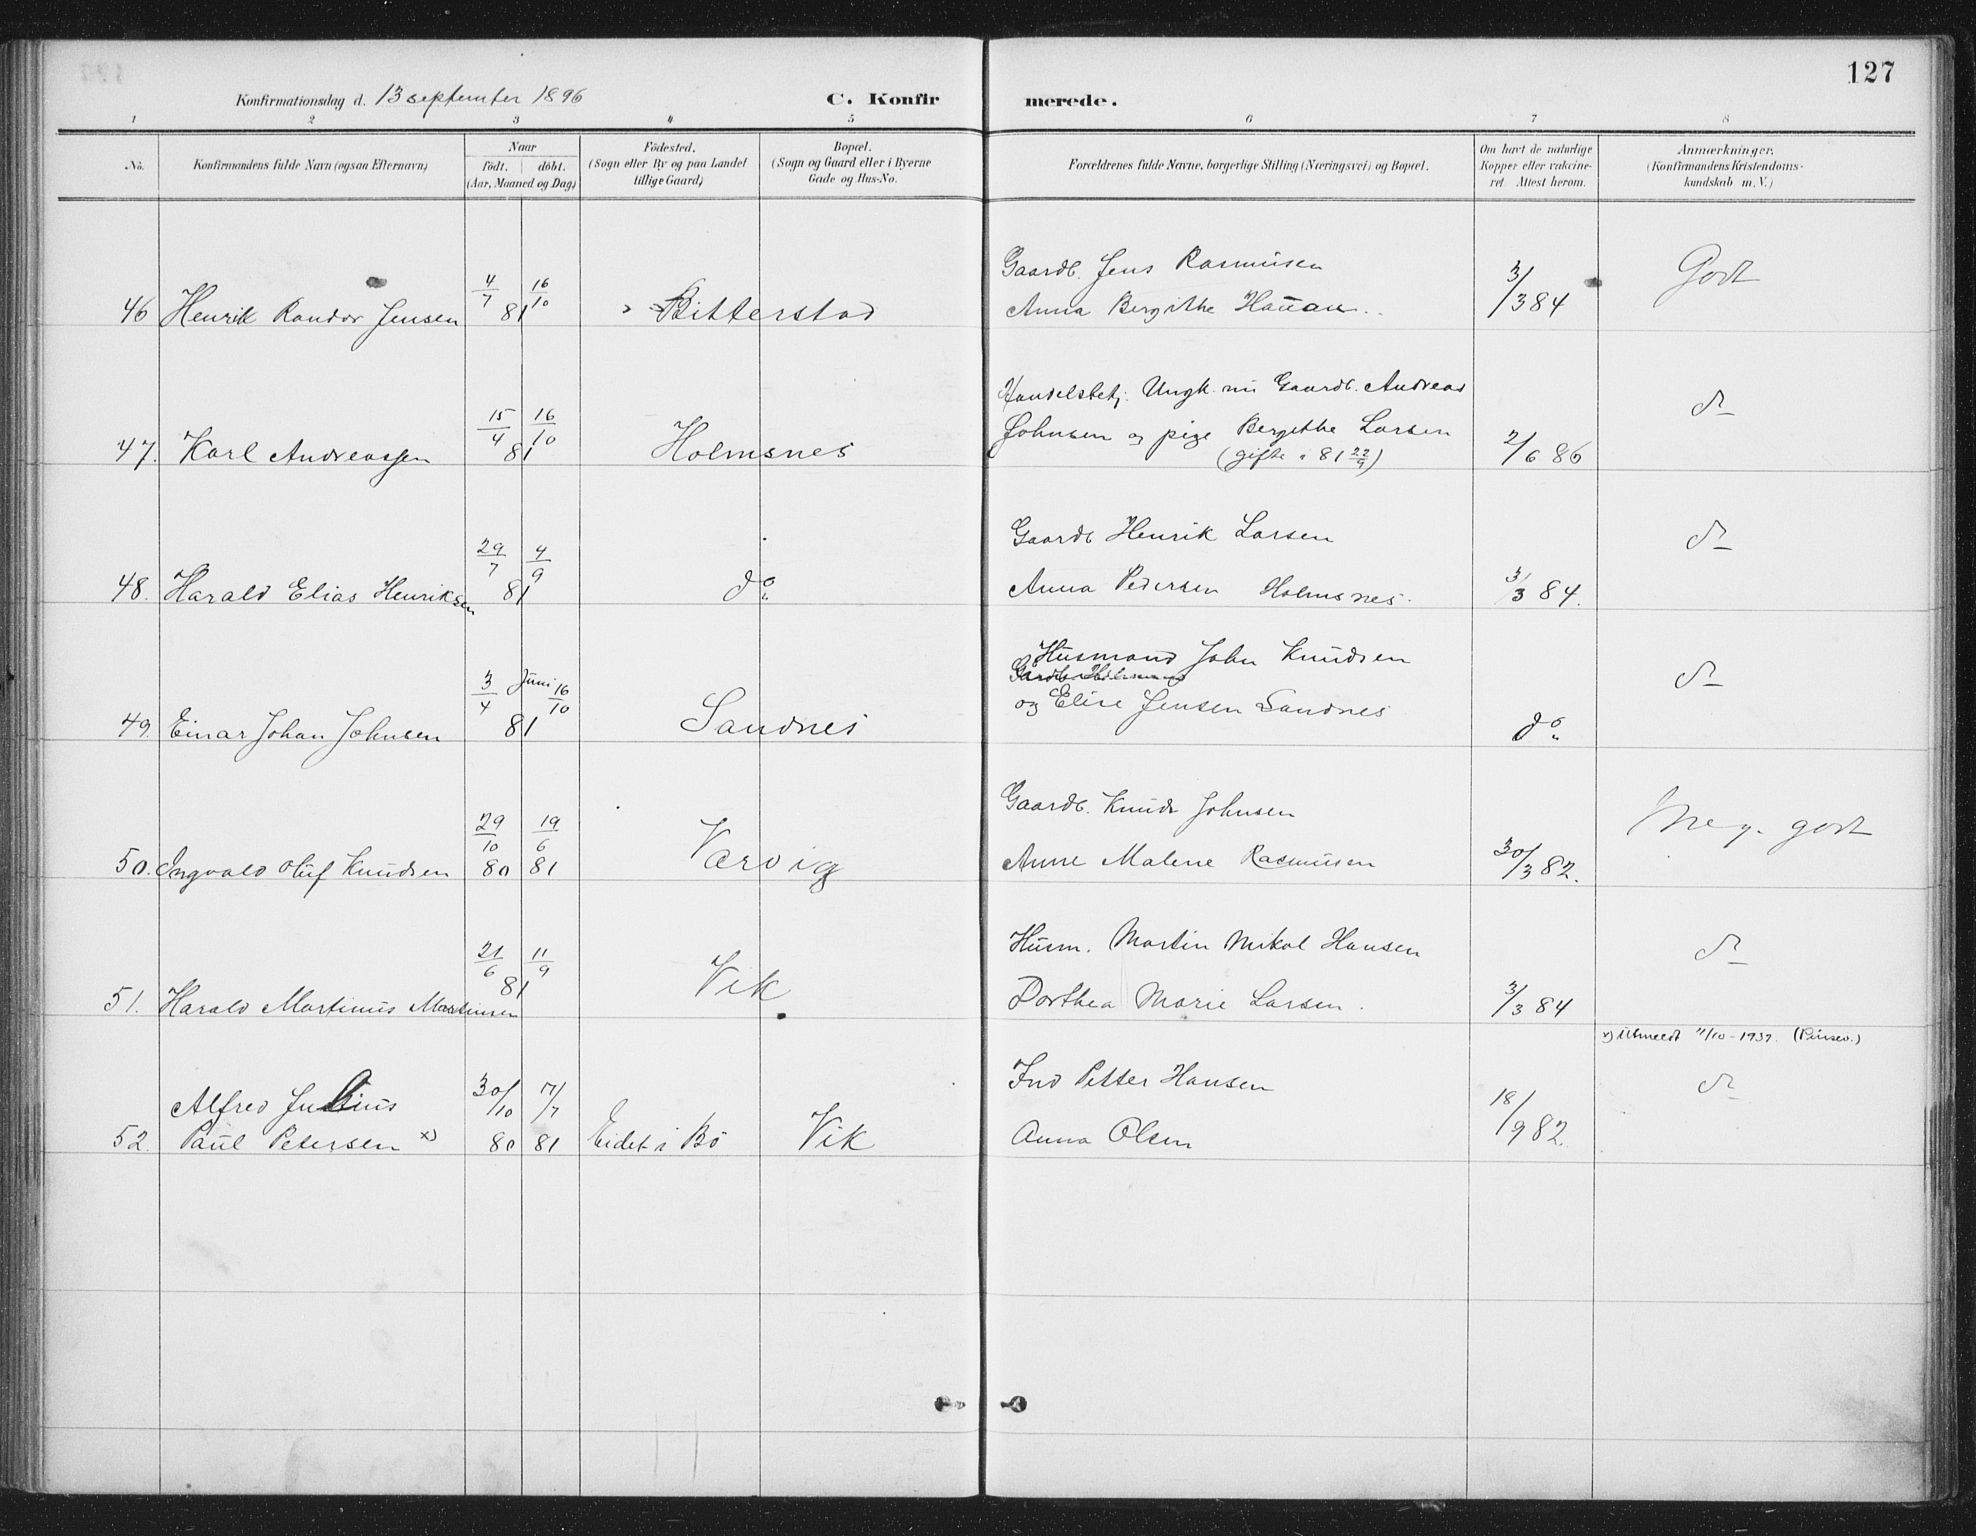 127
Konfirmationsdag d. 13 september 1896 C. Konfirmerede.
1 2 3 4 5 6 7 8
No. Konfirmandens fulde Navn (ogsaa Efternavn) Naar født. døbt. (Aar, Maaned og Dag) Fødested. (Sogn eller By og paa Landet tillige Gaard) Bopæl. (Sogn og Gaard eller i Byerne Gade og Hus-No. Forældrenes fulde Navne, borgerlige Stilling (Næringsvei) og Bopæl. Om havt de naturlige Kopper eller vakcineret. Attest herom. Anmærkninger, (Konfirmandens Kristendomskundskab m. V.)
Gaardb. Jens Rasmusen
46 Henrik Randor Jensen 4/7 16/10 81 Bitterstad Anna Bergithe Hauan 3/3 84 Godt
Handelsbetj. Ungk. nu Gaardb. Andreas
Johnsen og pige Bergithe Larsen
47. Karl Andreassen 15/4 16/10 81 Holmsnes (gifte i 81 22/9) 2/6 86 do
Gaardb Henrik Larsen
48. Harald Elias Henriksen 29/7 4/9 81 do Anna Pedersen Holmsnes. 3/3 84. do
Husmand John Knudsen
og Elise Jensen Sandnes
49. Einar Johan Johnsen 3/4 Juni 16/10 81 Sandnes do do
Gaardb. Knudt Johnsen
50. Ingvald Oluf Knudsen 29/10 80 19/6 81 Værvig Anne Malene Rasmusen 30/3 82. Meg. godt
Husm. Martin Mikal Hansen
51. Harald Martinus Martinsen 21/6 11/9 81 Vik Dorthea Marie Larsen. 3/3 84 do
x) Utmeldt 11/10-1937. (Pinsev.)
Alfred Julius Ind Petter Hansen
52. Paul Petersen x) 30/10 80 7/7 81 Eidet i Bø Vik Anna Olsen 18/9 82. do